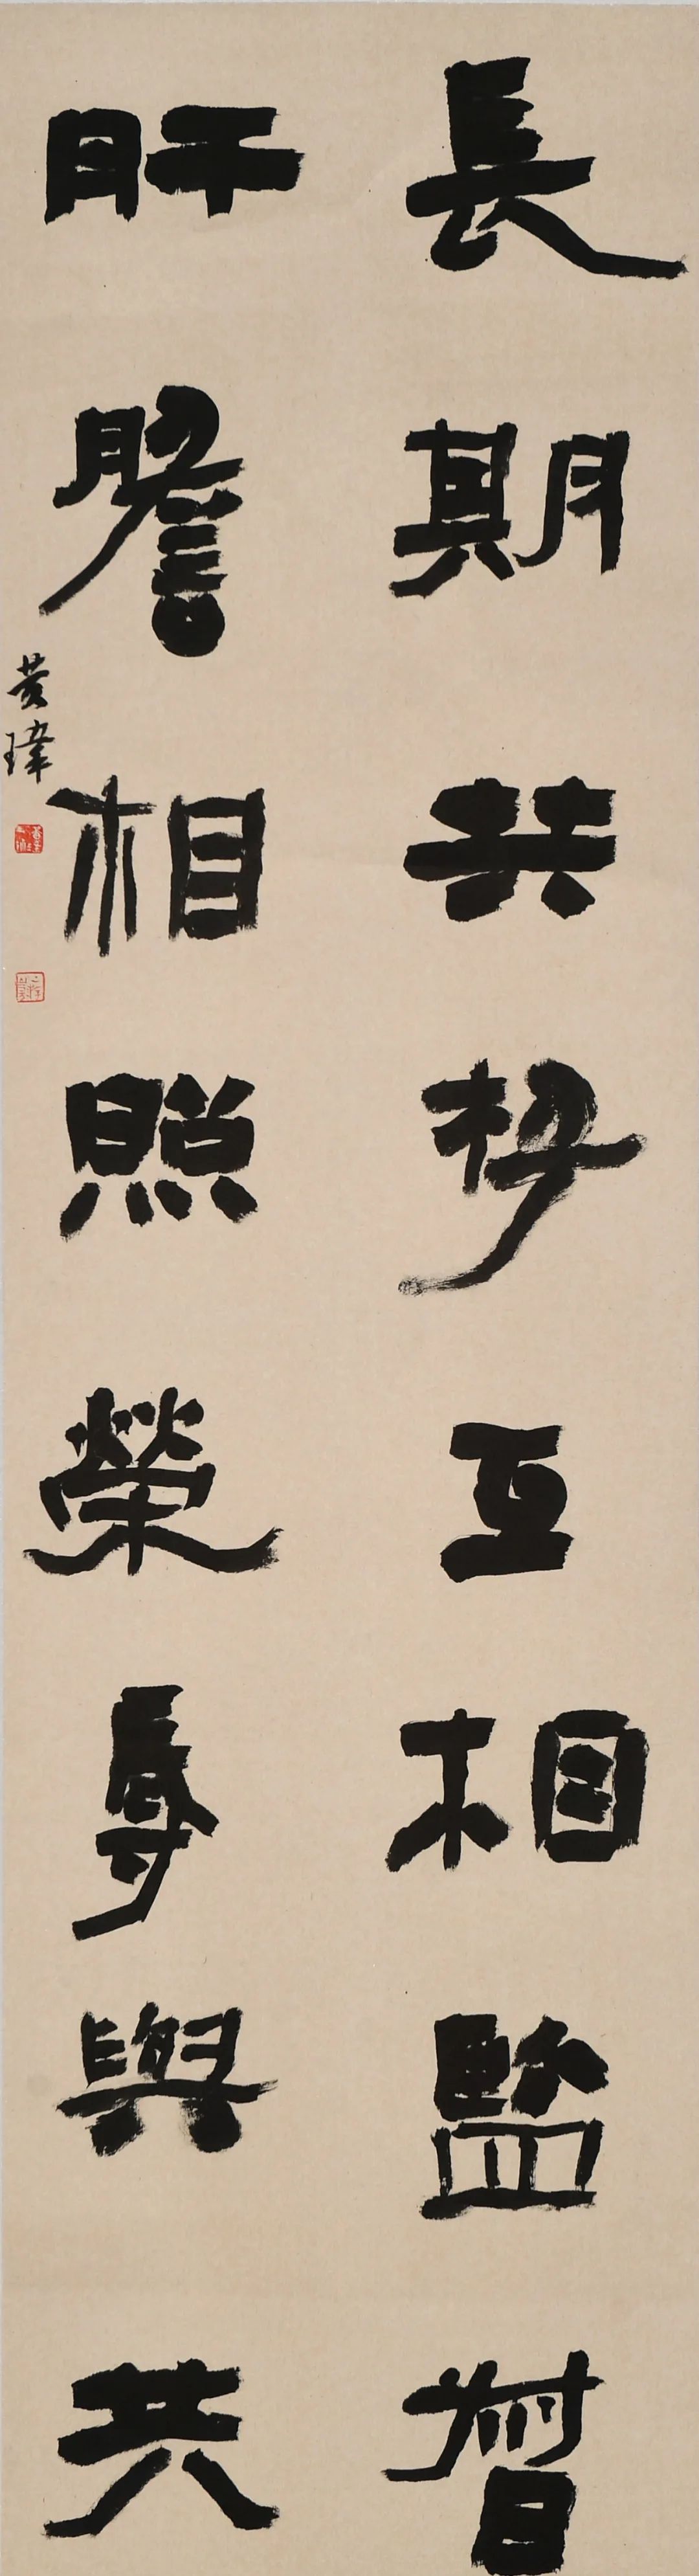 長期共存互相監督
肝膽相照榮辱與共
黄瑋